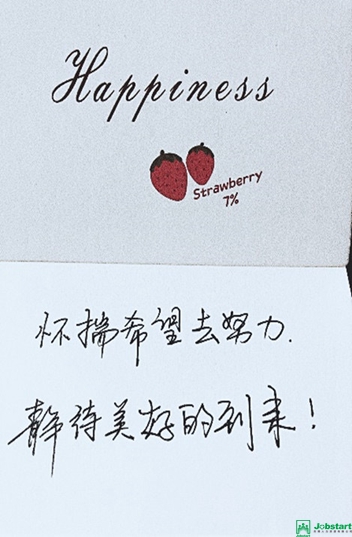 Happiness
Strawberry
7%
怀揣希望去努力.
静待美好的到来！
Jobstart